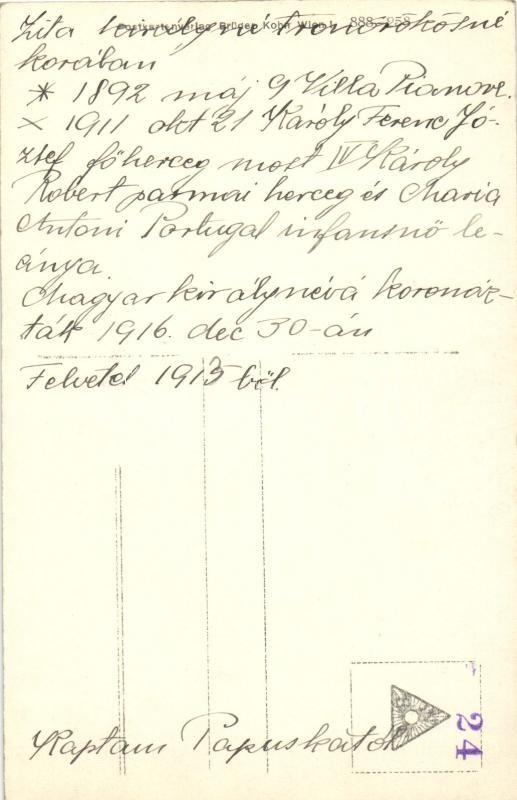 Postkartenverlag Brüder Kohn, Wien I. 888-258
Zita királyné trónörökösné
korában
* 1892 máj 9 Villa Pianore.
× 1911 okt 21 Károly Ferenc Jó-
zsef főherceg most IV Károly
Robert parmai herceg és Maria
Antoni Portugal infansnő le-
ánya.
Magyar királynévá koronáz-
ták 1916. dec 30-án
Felvétel 1913 ból.
Kaptam Papuskától
24